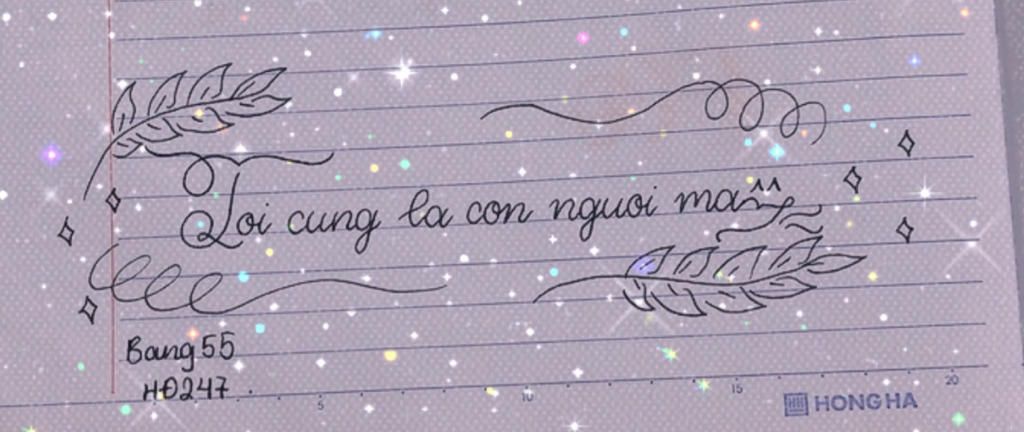 Toi cung la con nguoi ma^^
Bang55
HĐ247
5 10 15 20
HONG HA